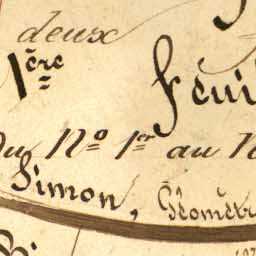 deux
1ère feui
Du N° 1er au N
Simon, Géomètr